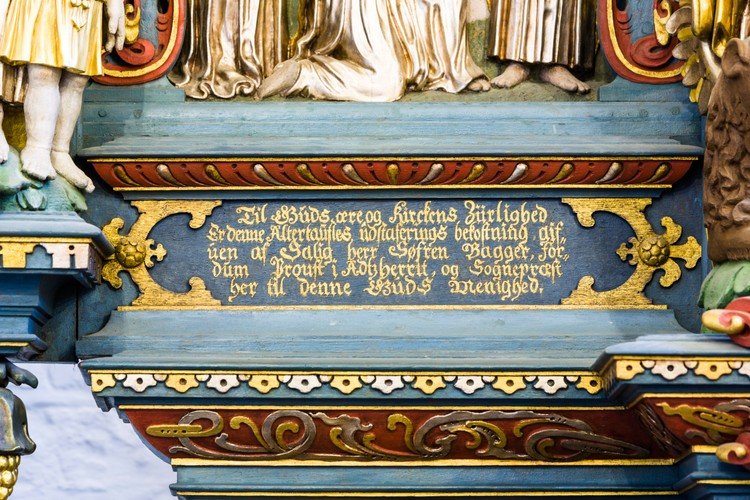 Til Guds ære og Kirckens Zürlighed
Er denne Altertaufles udstafferings bekostning gif-
uen af Salig herr Søfren Bagger, For-
dum Proust i Adsherrit, og Sognepræst
her til denne Guds Menighed.